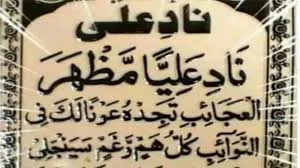 نادعلی
نَادِ عَلِيًّا مَّظْهَرَ
الْعَجَائِبِ تَجِدْهُ عَوْنًا لَّكَ فِی
النَّوَائِبِ كُلُّ هَمٍّ وَّغَمٍّ سَيَنْجَلِی